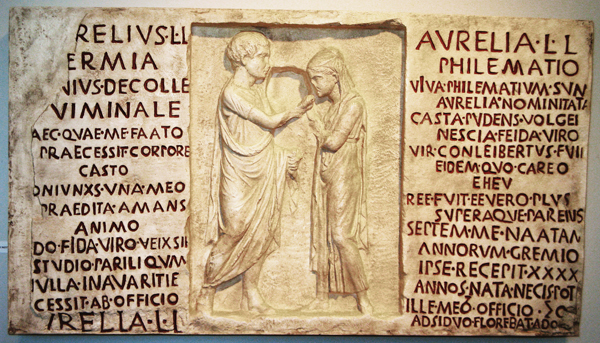 RELIUS·L·L
ERMIA
NIUS·DE·COLLE
VIMINALE
AEC·QVAE·ME·FAATO
PRAECESSIT·CORPORE
CASTO
ONIVNXS·VNA·MEO
PRAEDITA·AMANS
ANIMO
DO·FIDA·VIRO·VEIXSIT
STUDIO·PARILI·QVM
NVLLA·IN·AVARITIE
CESSIT·AB·OFFICIO
RELIA·L·L
AVRELIA·L·L
PHILEMATIO
VIVA·PHILEMATIUM·SUN
AVRELIA·NOMINITATA
CASTA·PVDENS·VOLGEI
NESCIA·FEIDA·VIRO
VIR·CONLEIBERTUS·FVIT
EIDEM·QVO·CAREO
EHEV
REE·FVIT·EE·VERO·PLVS
SVPERAQVE·PAREIUS
SEPTEM·ME·NAATAM
ANNORVM·GREMIO
IPSE·RECEPIT·XXXX
ANNOS·NATA·NECIS·POT
ILLE·MEO·OFFICIO
ADSIDVO·FLOREBAT·ADO